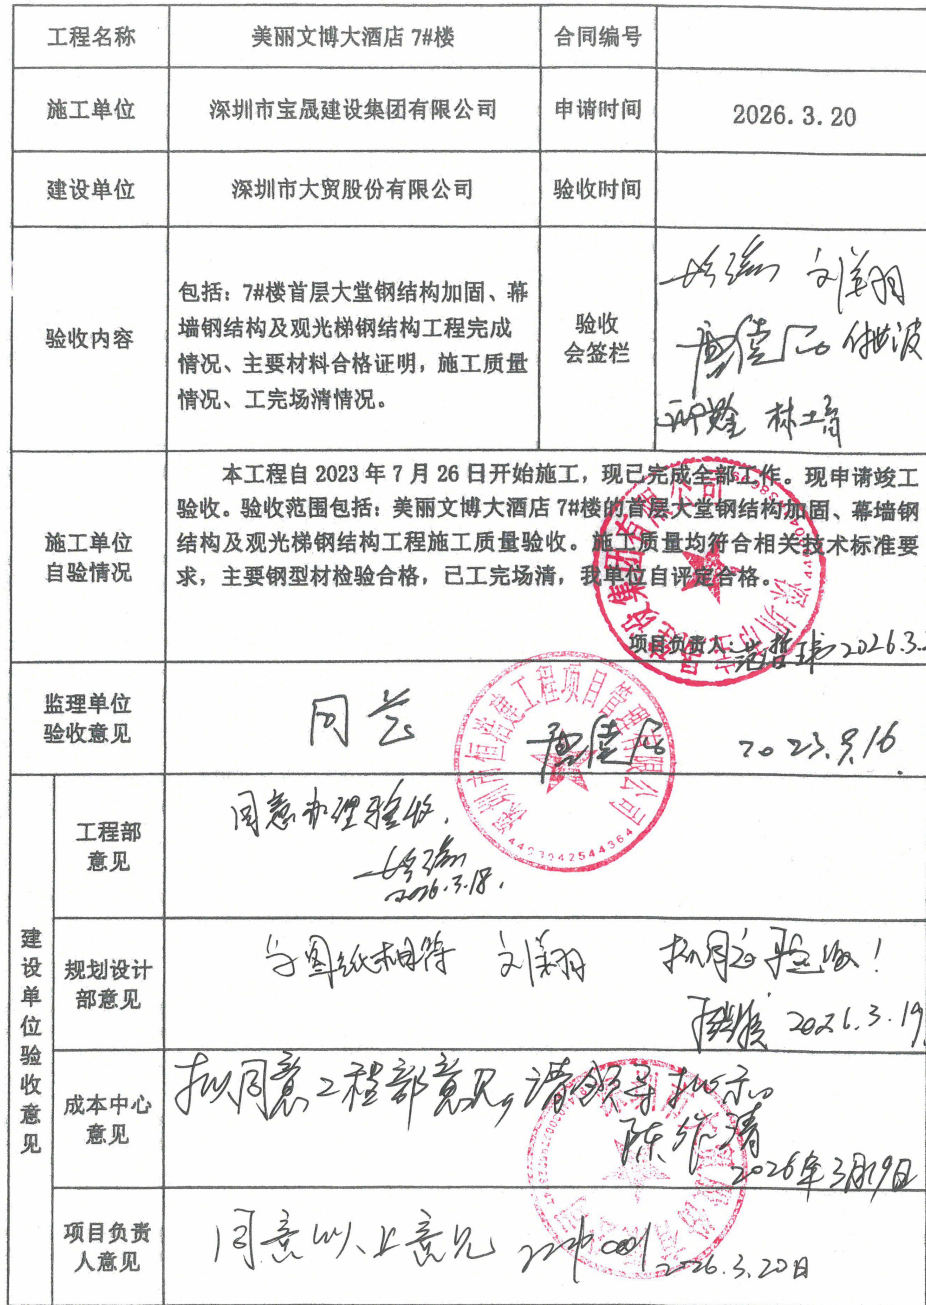 工程名称 美丽文博大酒店 7#楼 合同编号
施工单位 深圳市宝晟建设集团有限公司 申请时间 2026.3.20
建设单位 深圳市大贸股份有限公司 验收时间
验收内容
包括：7#楼首层大堂钢结构加固、幕
墙钢结构及观光梯钢结构工程完成
情况、主要材料合格证明，施工质量
情况、工完场清情况。
验收
会签栏
施工单位
自验情况
本工程自 2023 年 7 月 26 日开始施工，现已完成全部工作。现申请竣工
验收。验收范围包括：美丽文博大酒店 7#楼的首层大堂钢结构加固、幕墙钢
结构及观光梯钢结构工程施工质量验收。施工质量均符合相关技术标准要
求，主要钢型材检验合格，已工完场清，我单位自评定合格。
项目负责人： 2026.3.
监理单位
验收意见
同意
深圳市恒浩建工程项目管理有限公司
建设单位验收意见
工程部
意见
同意办理验收.
2026.3.18.
规划设计
部意见
与图纸相符 拟同意验收！
2026.3.19
成本中心
意见
拟同意工程部意见，请领导批示
2026年3月19日
项目负责
人意见
同意以上意见
2026.3.20日